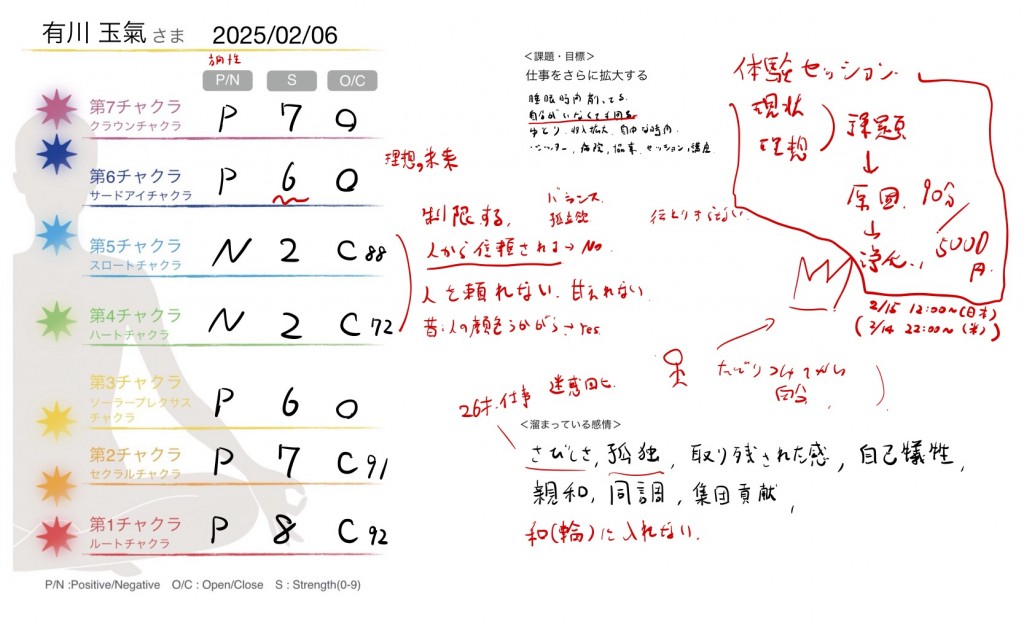 有川 玉氣 さま 2025/02/06
P/N S O/C
第7チャクラ
クラウンチャクラ
P 7 O
第6チャクラ
サードアイチャクラ
P 6 O
理想の未来
第5チャクラ
スロートチャクラ
N 2 C 88
第4チャクラ
ハートチャクラ
N 2 C 72
第3チャクラ
ソーラープレクサス
チャクラ
P 6 O
第2チャクラ
セクラルチャクラ
P 7 C 91
第1チャクラ
ルートチャクラ
P 8 C 92
P/N :Positive/Negative O/C : Open/Close S : Strength(0-9)
<課題・目標>
仕事をさらに拡大する
睡眠時間削ってる
自分がいなくても回る
ゆとり、収入拡大、自由な時間
病院、協業、セッション、講座
制限する、
バランス
孤立
人から信頼される→No
人を頼れない、甘えれない
昔:人の顔色うかがう→Yes
26才、仕事
迷惑
自分
<溜まっている感情>
さびしさ, 孤独, 取り残された感, 自己犠牲,
親和, 同調, 集団貢献,
和(輪)に入れない.
体験セッション
現状
理想
課題
↓
原因、90分
↓
浄化、5000
円
2/15 12:00〜(日本)
(2/14 22:00〜(米))